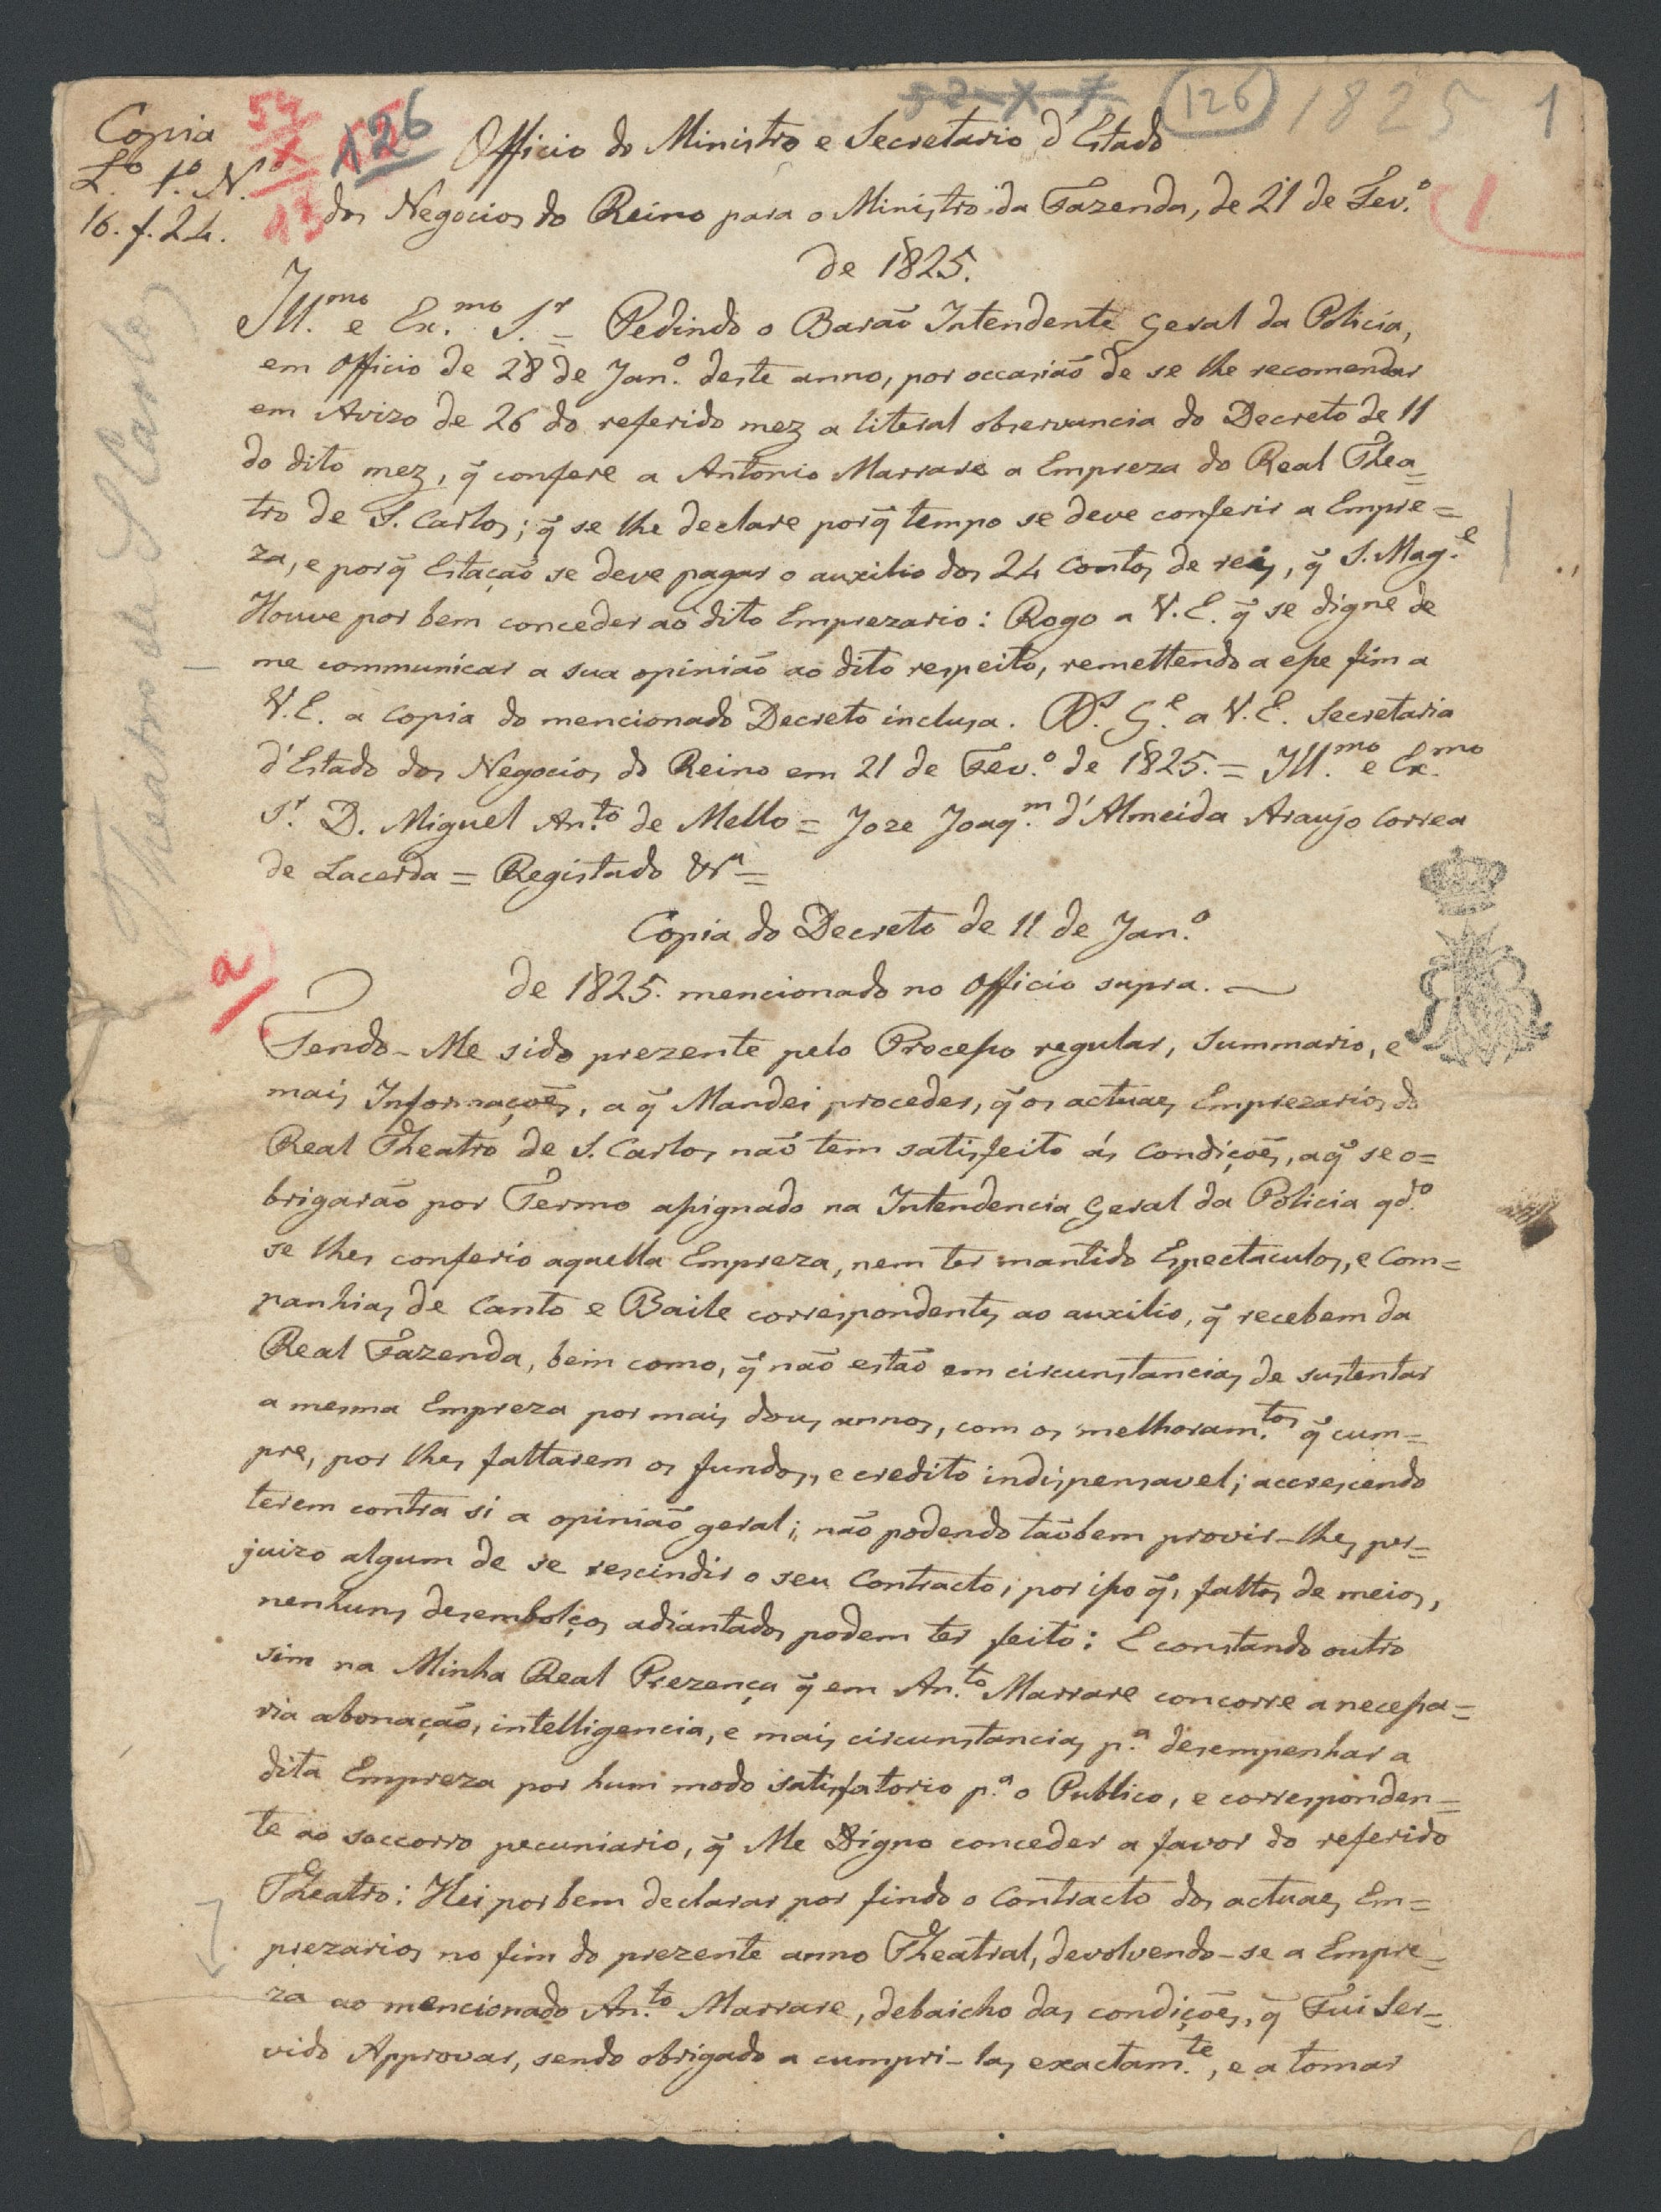 Copia
L.º 1.º N.º
16. f. 24.
54
X
13
126
52-X-7
126
1825
1
1
Officio do Ministro e Secretario d'Estado
dos Negocios do Reino para o Ministro da Fazenda, de 21 de Fev.º
de 1825.
Ill.mo e Ex.mo S.r = Pedindo o Barão Intendente Geral da Policia,
em Officio de 28 de Jan.º deste anno, por occasião de se lhe recomendar
em Avizo de 26 do referido mez a literal observancia do Decreto de 11
do dito mez, q̃ confere a Antonio Marrare a Empreza do Real Thea=
tro de S. Carlos; q̃ se lhe declare porq̃ tempo se deve conferir a Empre=
za, e porq̃ Estação se deve pagar o auxilio dos 24 Contos de reis, q̃ S. Mag.e
Houve por bem conceder ao dito Emprezario: Rogo a V. E. q̃ se digne de
me communicar a sua opinião ao dito respeito, remettendo a esse fim a
V. E. a copia do mencionado Decreto inclusa. D.s G.e a V. E. Secretaria
d'Estado dos Negocios do Reino em 21 de Fev.º de 1825. = Ill.mo e Ex.mo
S.r D. Miguel An.to de Mello = Joze Joaq.m d'Almeida Araujo Correa
de Lacerda = Registado &.a =
Copia do Decreto de 11 de Jan.º
de 1825. mencionado no Officio supra. —
a
Tendo-Me sido prezente pelo Processo regular, Summario, e
mais Informações, a q̃ Mandei proceder, q̃ os actuaes Emprezarios do
Real Theatro de S. Carlos não tem satisfeito ás Condições, a q̃ se o=
brigarão por Termo assignado na Intendencia Geral da Policia qd.º
se lhes conferio aquella Empreza, nem ter mantido Espectaculos, e Com=
panhias de Canto e Baile correspondentes ao auxilio, q̃ recebem da
Real Fazenda, bem como, q̃ não estão em circunstancias de sustentar
a mesma Empreza por mais dous annos, com os melhoram.tos q̃ cum=
pre, por lhes faltarem os fundos, e credito indispensavel; accrescendo
terem contra si a opinião geral; não podendo tãobem provir-lhes per=
juizo algum de se rescindir o seu Contracto; por isso q̃, faltos de meios,
nenhuns desembolços adiantados podem ter feito: E constando outro
sim na Minha Real Prezença q̃ em An.to Marrare concorre a necessa=
ria abonação, intelligencia, e mais circunstancias p.a desempenhar a
dita Empreza por hum modo satisfatorio p.a o Publico, e corresponden=
te ao soccorro pecuniario, q̃ Me Digno conceder a favor do referido
Theatro: Hei por bem declarar por findo o Contracto dos actuaes Em=
prezarios no fim do prezente anno Theatral, devolvendo-se a Empre=
za ao mencionado An.to Marrare, debaicho das condições, q̃ Fui Ser=
vido Approvar, sendo obrigado a cumpri-las exactam.te, e a tomar
Theatro de S Carlos